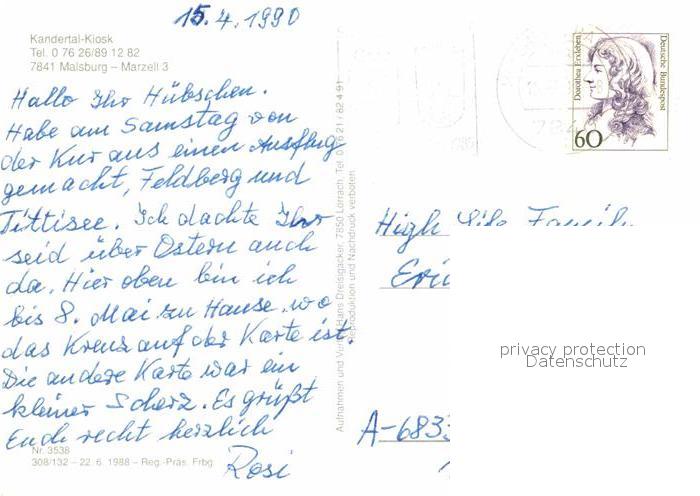 15.4.1990
Kandertal-Kiosk
Tel. 0 76 26/89 12 82
7841 Malsburg – Marzell 3
Hallo Ihr Hübschen.
Habe am Samstag von
der Kur aus einen Ausflug
gemacht, Feldberg und
Tittisee. Ich dachte Ihr
seid über Ostern auch
da. Hier oben bin ich
bis 8. Mai zu Hause. wo
das Kreuz auf der Karte ist.
Die andere Karte war ein
kleiner Scherz. Es grüßt
Euch recht herzlich
Rosi
Nr. 3538
308/132 – 22. 6. 1988 – Reg.-Präs. Frbg
Aufnahmen und Verlag Hans Dreisigacker, 7850 Lörrach, Tel. 0 76 21 / 8 24 91
Reproduktion und Nachdruck verboten
Dorothea Erxleben
Deutsche Bundespost
60
High
A-6833
privacy protection
Datenschutz